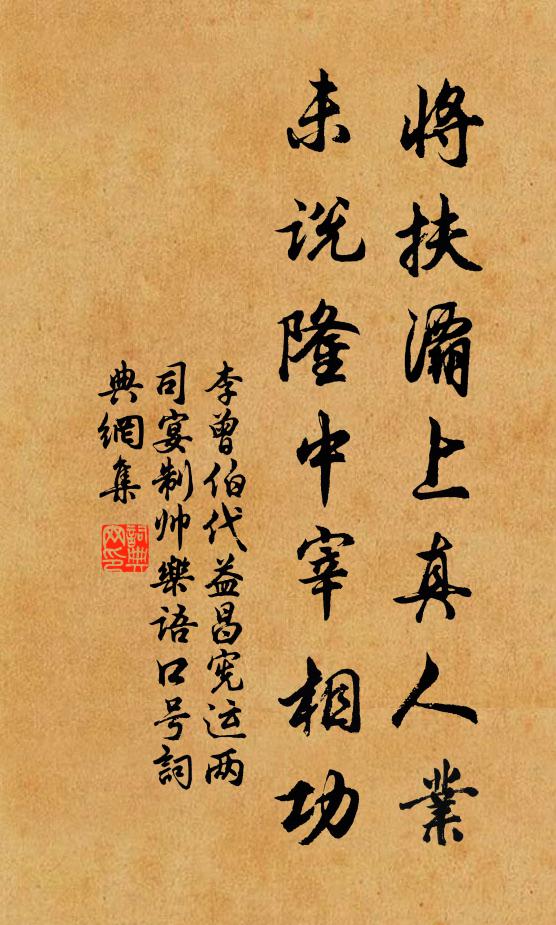 将扶灞上真人業
未说隆中宰相功
李曾伯代益昌宪运两
司宴制帅樂语口号詞
典網集
詞典网印